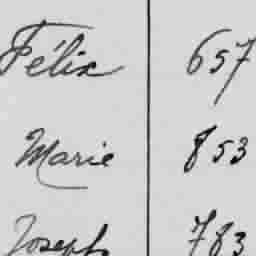 Félix 657
Marie 853
Joseph 783